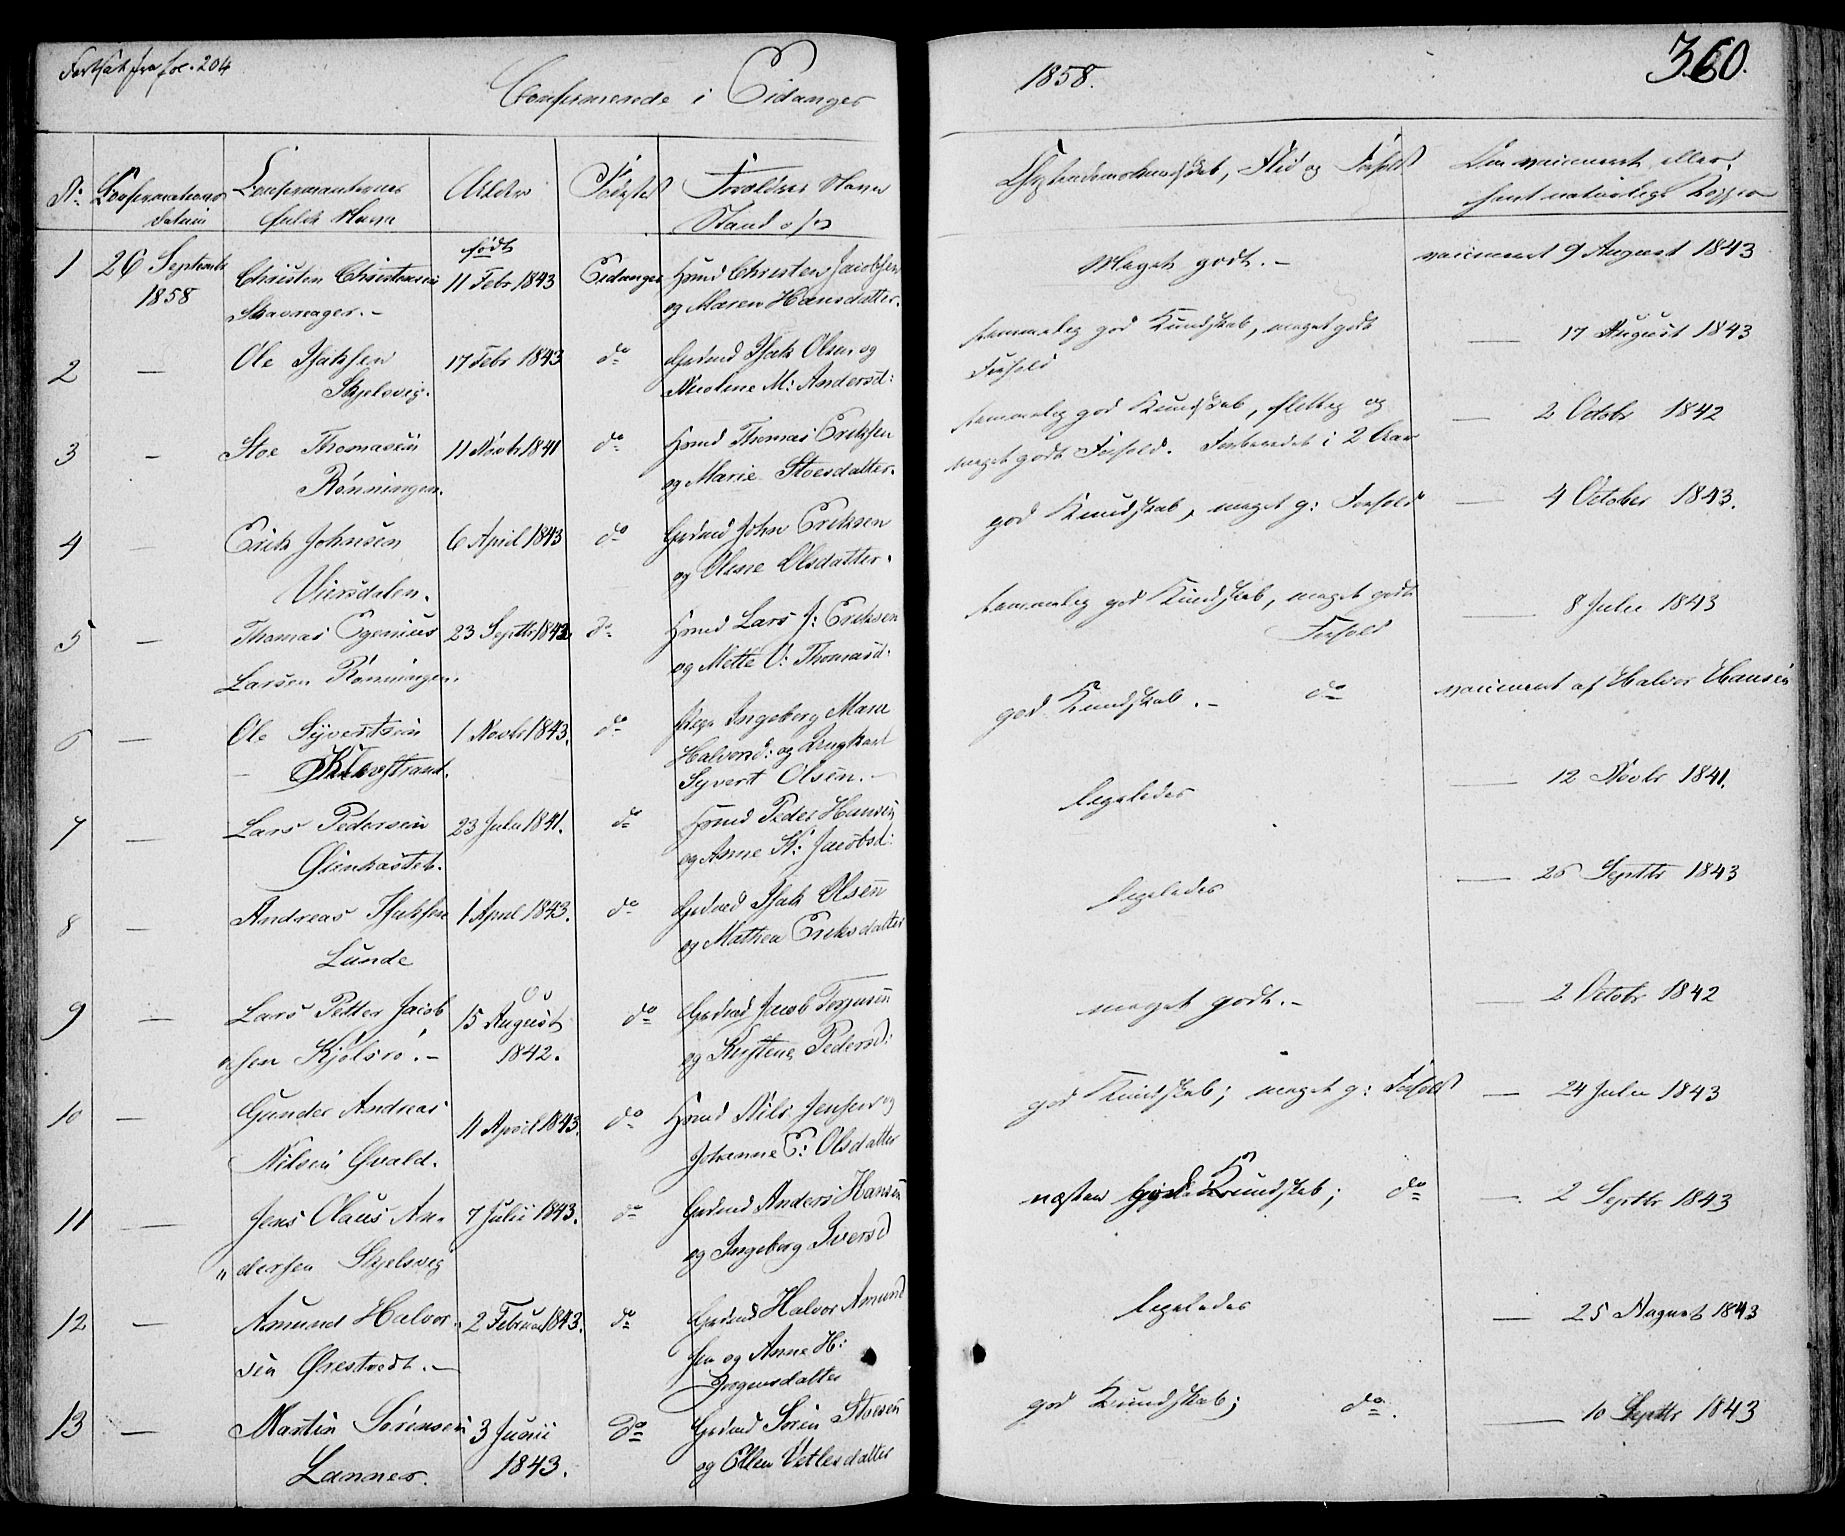 Fortsat fra fol. 204
Confirmerede i Eidanger
1858.
360.
No Confirmationens Datum
Confirmanternes fulde Navn
Alder
Fødested
Forældres Navn Stand o s v
Christendomskundskab, Flid og Forhold
Om vaccineret eller havt naturlige Kopper
1 26 Septembr 1858 Christen Christensen født 11 Febr 1843 Eidanger Hmd Christen Jacobsen Meget godt. - vaccineret 9 August 1843
Skavrager. - og Maren Hansdatter.
2 — Ole Isaksen 17 Febr 1843 do Gdmd Isak Olsen og temmelig god Kundskab, meget godt — 17 August 1843
Skjelsvig. Nicolene M: Andersd: Forhold
3 — Stoe Thomasen 11 Novbr 1841 do Hmd Thomas Eriksen temmelig god Kundskab, flittig og — 2 Octobr 1842
Rønningen. og Marie Stoesdatter. meget godt Forhold. Forberedet i 2 Aar
4 — Erik Johnsen 6 April 1843 do Gdmd John Eriksen god Kundskab, meget g: Forhold — 4 October 1843.
Viersdalen. og Olene Olsdatter.
5 — Thomas Ogenius 23 Septbr 1842 do Hmd Lars J: Eriksen temmelig god Kundskab, meget godt — 8 Julii 1843
Larsen Rønningen. og Mette V: Thomasd. Forhold
6 — Ole Syvertsen 1 Novbr 1843. do Pige Ingeborg Marie god Kundskab. - do vaccineret af Halvor Hansen
Klovstrand. Halvorsd: og Ungkarl
Syvert Olsen. -
7 — Lars Pedersen 23 Julii 1841. do Hmd Peder Hansen ligeledes — 12 Novbr 1841.
Øienkasteb. og Anne K: Jacobsd:
8 — Andreas Isaksen 1 April 1843. do Gdmd Isak Olsen ligeledes — 26 Septbr 1843
Lunde og Mathea Eriksdatter
9 — Lars Petter Jacob 15 August do Gdmd Jacob Terjesen meget godt. - — 2 Octobr 1842
sen Kjølsrø. - 1842. og Kirstene Pedersd:
10 — Gunder Andreas 11 April 1843. do Hmd Nils Jensen og god Kundskab; meget g: Forhold — 24 Julii 1843
Nilsen Qvald. Johanne E: Olsdatter
11 — Jens Olaus An- 7 Julii 1843. do Gdmd Anders Hansen næsten god Kundskab; do — 2 Septbr 1843
dersen Skjelsvig og Ingeborg Iversd
12 — Amund Halvor- 2 Februar 1843. do Gdmd Halvor Amund ligeledes — 25 August 1843
sen Ørestvedt. - sen og Anne H:
Jørgensdatter
13 — Martin Sørensen 3 Junii do Gdmd Søren Stoesen god Kundskab; do. — 10 Septbr 1843
Lanner. 1843. og Ellen Vetlesdatter